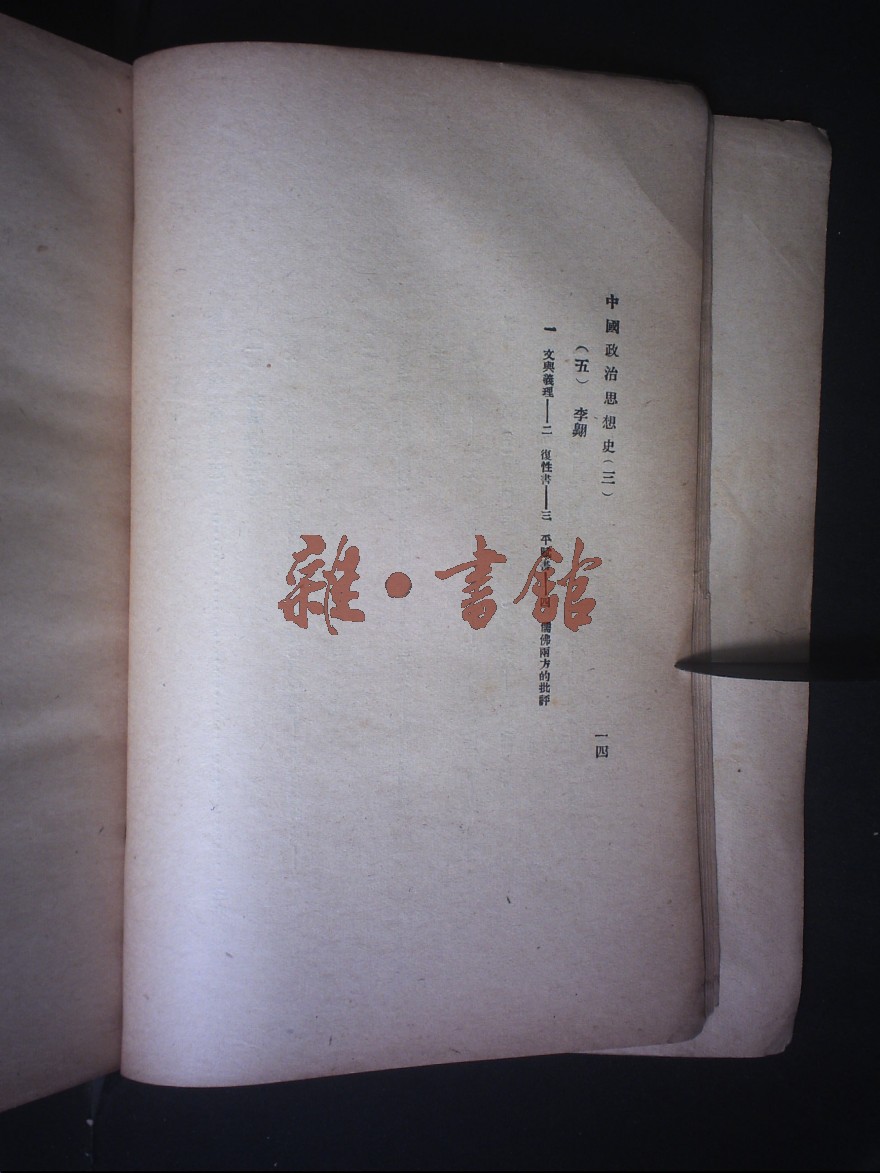 中國政治思想史(三)
一四
(五) 李翺
一 文與義理——二 復性書——三 平賦書 四 儒佛兩方的批評
雜·書館